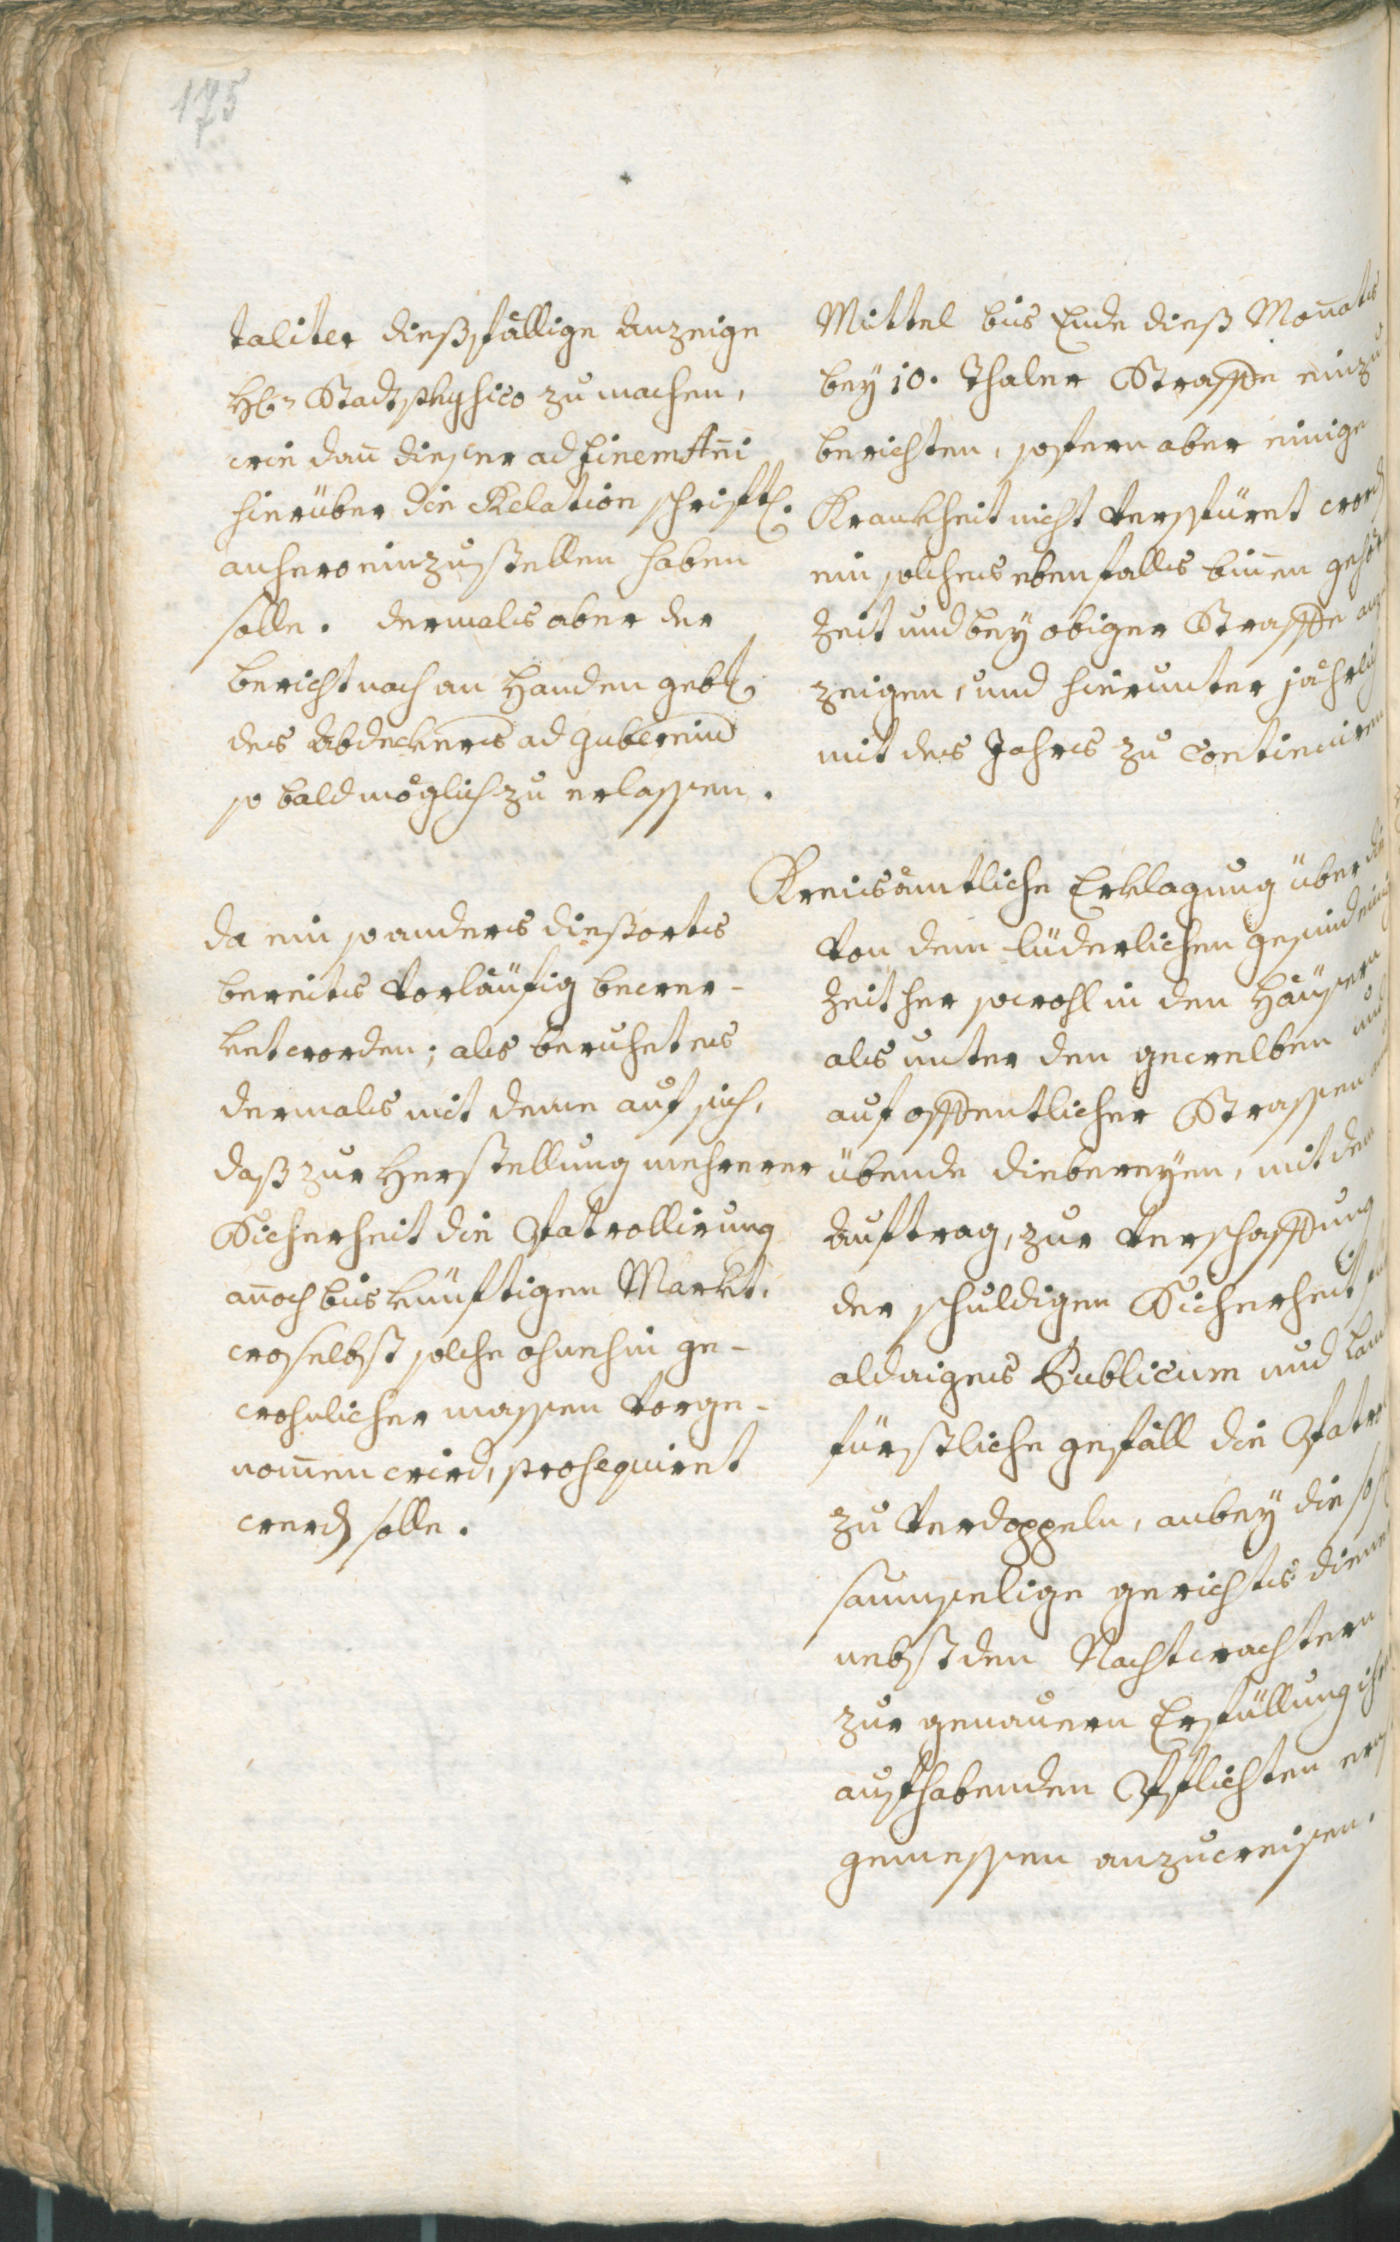 175
taliter dießfällige Anzeige
H: Stadtphysico zu machen,
wie dañ dieser ad finem Añi
hierüber die Relation schriftl.
anhero einzustellen haben
solle. dermals aber der
bericht nach an Handen gebl.
des Abdeckers ad gubernium
so bald möglich zu erlassen.
da ein so anders diesorts
bereits vorläufig bewer-
ket worden; als beruhet es
dermals mit deme auf sich,
daß zur Herstellung mehrerer
Sicherheit die Patrollirung
añoch bis künftigen Markt,
woselbst solche ohnehin ge-
wohnlicher massen vorge-
nom̄en wird, prosequiret
werd solle.
Mittel bis Ende dieß Monats
bey 10. Thaler Straffe einzu
berichten, sofern aber einige
Krankheit nicht verspüret
ein solches ebenfalls biñen
Zeit und bey obiger Straffe
zeigen, und hierunter jährlich
mit des Jahrs zu continuiren
Kreisämtliche Erklagung über die
von dem lüderlichen gesind einig
Zeit her sowohl in den Häusern
als unter den gewelben und
auf offentlicher Strassen
übende diebereyen, mit dem
Auftrag, zur verschaffung
der schuldigen Sicherheit
aldaiges Publicum und
fürstliche gefäll die
zu verdoppeln, anbey die
saumselige gerichts diener
nebst den Nachtwachtern
zur genauern Erfüllung
aufhabenden Pflichten
gemessen anzuweisen.